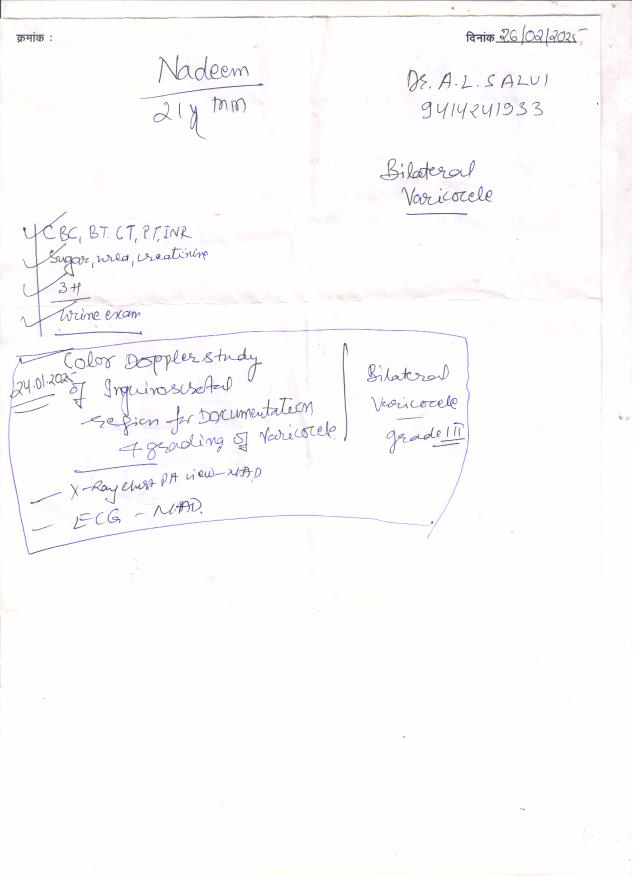 क्रमांक :
दिनांक 26/02/2025
Nadeem
21y mm
Dr. A.L. SALVI
9414241933
Bilateral
Varicocele
CBC, BT. CT, PT, INR
Sugar, urea, creatinine
3H
Urine exam
Color Doppler study
24.01.2025 of Inguinoscrotal
region for Documentation
+ grading of Varicocele
Bilateral
Varicocele
grade III
X-Ray chest PA view - NAD
ECG - NAD.